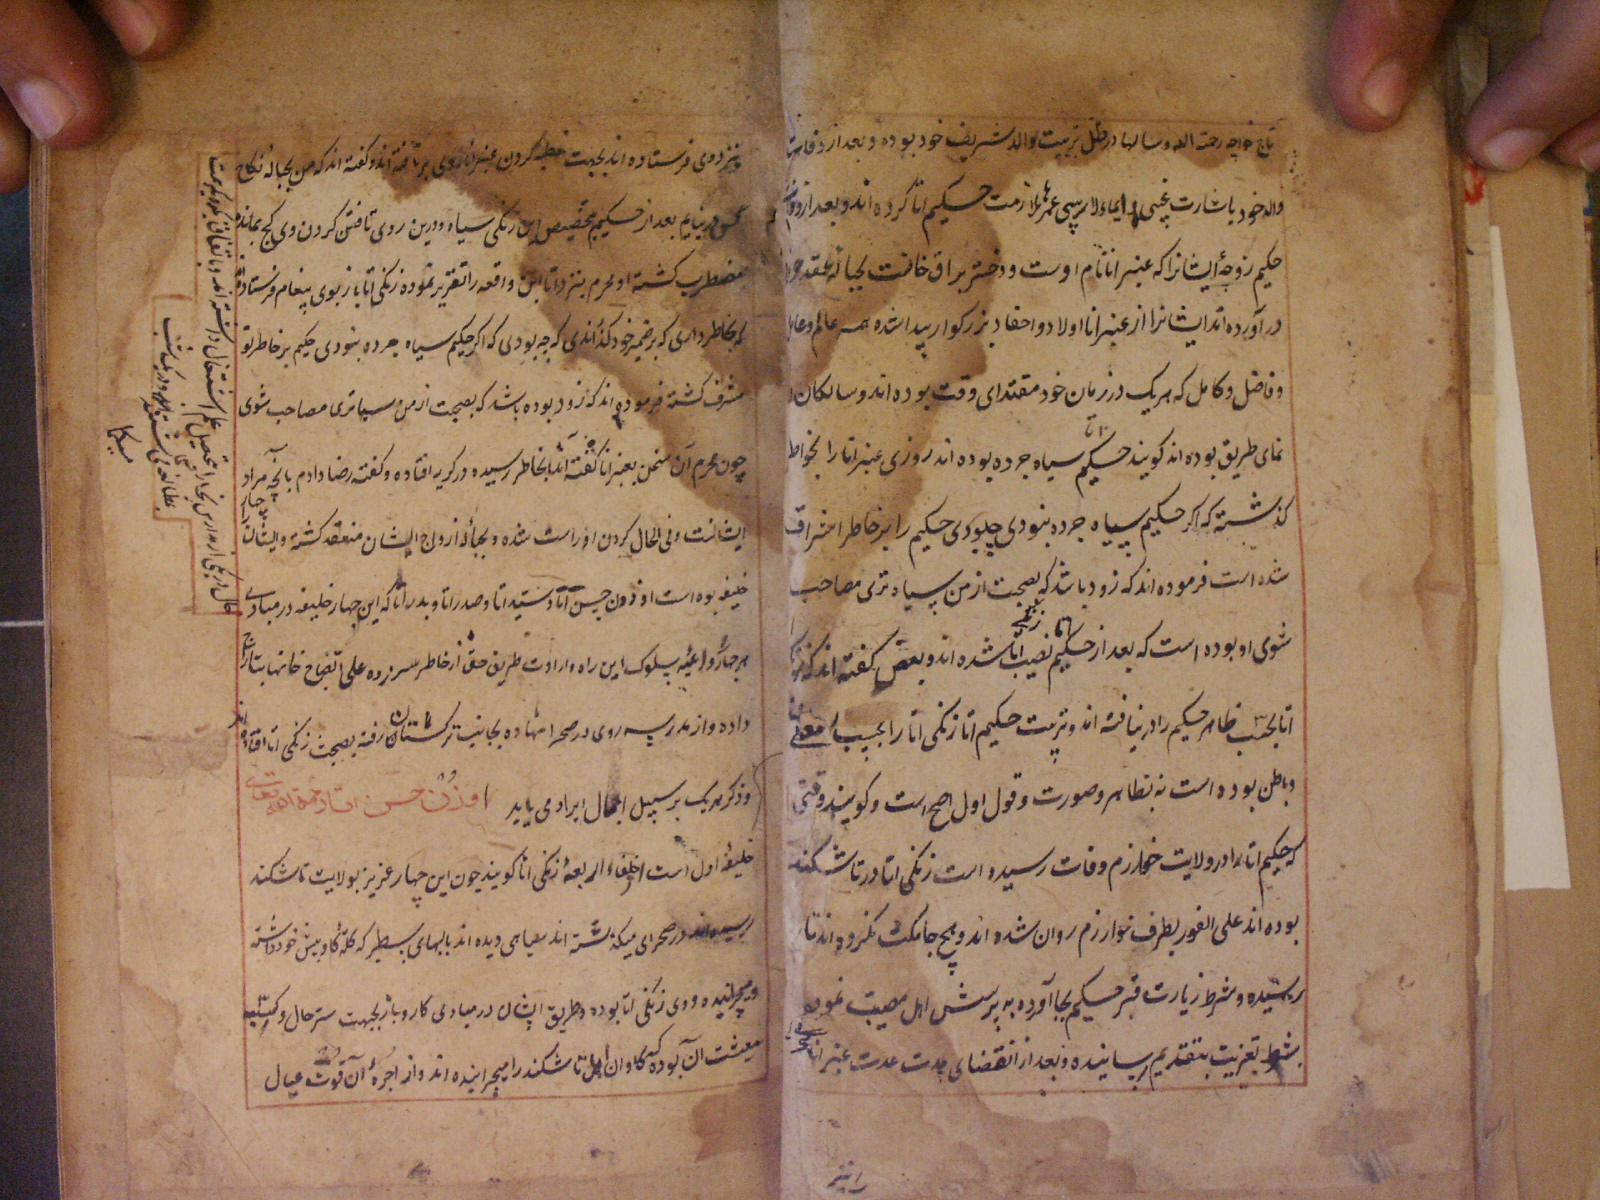 تاج خواجه رحمة الله وسالها در ظل تربیت والد شریف خود بوده و بعد از وفات
والد خود باشارت غیبی و ایماء لاریبی عمرها ملازمت حکیم اتا کرده اند و بعد از وفات
حکیم زوجهٔ ایشانرا که عنبر انا نام اوست و دختر براق خانست بحباله عقد خود
در آورده اند ایشانرا از عنبر انا اولاد و احفاد بزرکوار پیدا شده همه عالم و عامل
و فاضل و کامل که هریک در زمان خود مقتدای وقت بوده اند و سالکان را
نمای طریق بوده اند کویند حکیم اتا سیاه جرده بوده اند روزی عنبر انا را بخواطر
کذشته که اکر حکیم سیاه جرده نبودی چه بودی حکیم را بر خاطر او اشراف
شده است فرموده اند که زود باشد که بصحبت از من سیاه تری مصاحب
شوی او بوده است که بعد از حکیم اتا نصیب زنکی اتا شده اند و بعضی کفته اند که زنکی
اتا بحسب ظاهر حکیم را در نیافته اند و تربیت حکیم اتا زنکی اتا را بحسب معنی
و باطن بوده است نه بظاهر و صورت و قول اول اصح است و کویند وقتی
که حکیم اتا را در ولایت خوارزم وفات رسیده است زنکی اتا در تاشکند
بوده اند علی الفور بطرف خوارزم روان شده اند و هیچ جا مکث نکرده اند تا
رسیده و شرط زیارت قبر حکیم بجا آورده به پرسش اهل مصیبت نموده
شرط تعزیت بتقدیم رسانیده و بعد از انقضای مدت عدت عنبر انا
و نزد وی فرستاده اند بجهت خطبه کردن عنبر انا روی برتافته اند و کفته اند که من بحباله نکاح
کس در نیایم بعد از حکیم بتخصیص این زنکی سیاه و درین روی تافتن کردن وی کج بمانده
مضطرب کشته او محرم بنزد اتا این واقعه را تقریر نموده زنکی اتا باز بوی پیغام فرستاده
که بخاطر داری که بر ضمیر خود کذراندی که چه بودی که اکر حکیم سیاه جرده نبودی حکیم بر خاطر تو
مشرف کشته فرموده اند که زود بوده باشد که بصحبت از من سیاه تری مصاحب شوی
چون محرم آن سخن بعنبر انا کفته آنرا بخاطر رسیده در کریه افتاده و کفته رضا دادم بآنچه مراد
ایشانست و فی الحال کردن او راست شده و بحباله ازواج ایشان منعقد کشته و ایشانرا چهار
خلیفه بوده است اوزون حسن اتا و سید اتا و صدر اتا و بدر اتا که این چهار خلیفه در مبادی
هر چهار را داعیه سلوک این راه و ارادت طریق حق از خاطر سرزده علی الصباح خانها بتاراج
داده و از مدرسه روی در صحرا نهاده بجانب ترکستان رفته بصحبت زنکی اتا افتاده اند
و ذکر هریک بر سبیل اجمال ایراد می یابد اوزون حسن اتا رحمة الله تعالی
خلیفهٔ اول است از خلفاء اربعهٔ زنکی اتا کویند چون این چهار عزیز بولایت تاشکند
رسیده اند در صحرای میکذشته اند سیاهی دیده اند با لبهای سطبر که کله کاو پیش خود داشته
و میچرانیده و وی زنکی اتا بوده و طریق ایشان در مبادی کار و بار بجهت ستر حال و کسب
معیشت آن بوده که کاوان اهل تاشکند را میچرانیده اند و از اجرهٔ آن قوت عیال